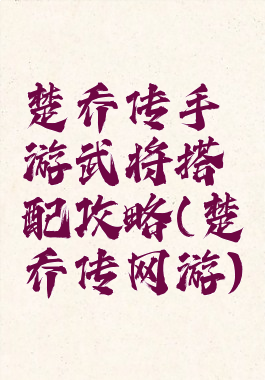 楚乔传手
游武将搭
配攻略(楚
乔传网游)